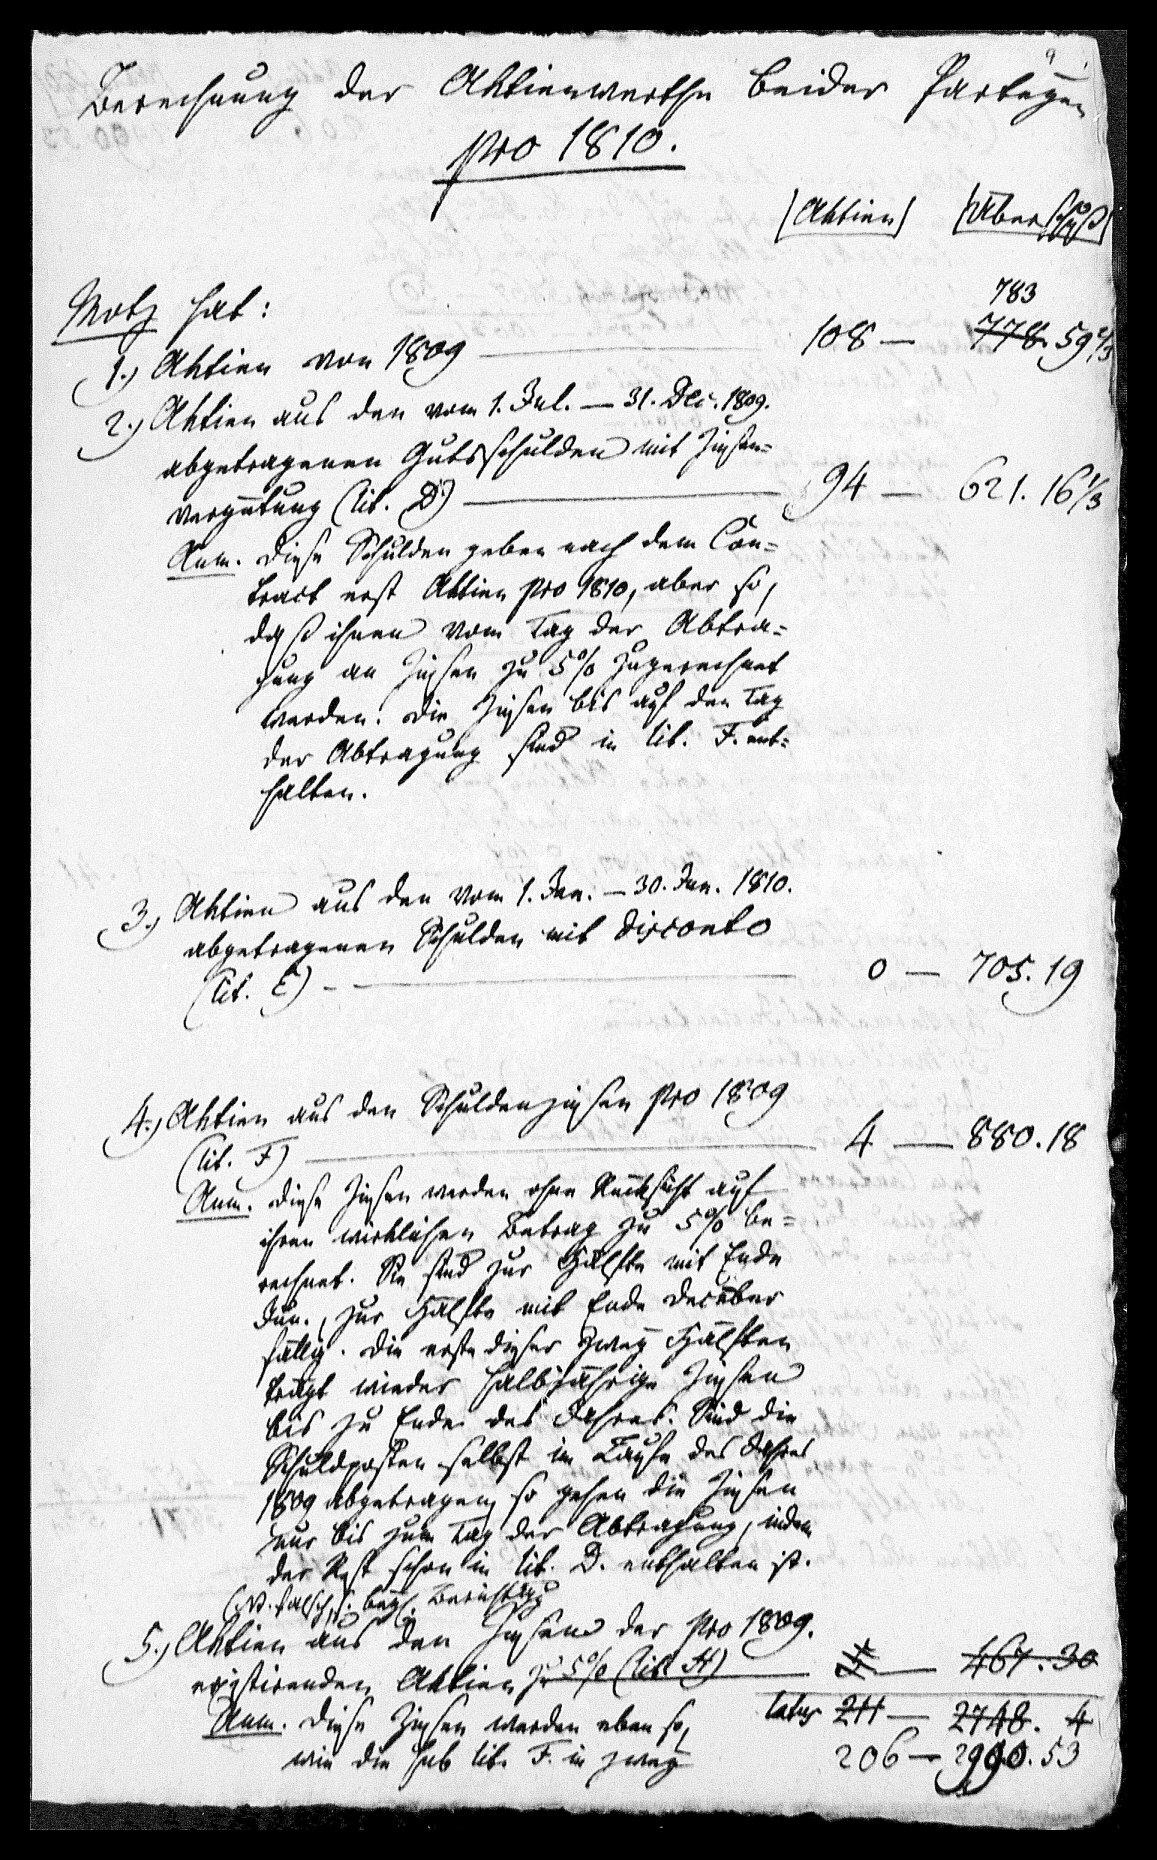 Berechnung der Aktienwerthe beider Parteyen
pro 1810.
Aktien Überschuß
783
Motz hat:
1.) Aktien von 1809 — 108 — 778. 59 2/3
2.) Aktien aus den vom 1. Jul. — 31. Dec. 1809.
abgetragenen Gutsschulden mit Zinsen=
vergütung (lit. D.) — 94 — 621. 16 1/3
Anm. Diese Schulden geben nach dem Con=
tract erst Aktien pro 1810, aber so,
daß ihnen vom Tag der Abtra=
gung an Zinsen zu 5% zugerechnet
werden. Die Zinsen bis auf den Tag
der Abtragung sind in lit. F. ent=
halten.
3.) Aktien aus den vom 1. Jan. — 30. Jun. 1810.
abgetragenen Schulden mit Disconto
(lit. E) — 0 — 705. 19
4.) Aktien aus den Schuldenzinsen pro 1809
(lit. F) — 4 — 880. 18
Anm. Diese Zinsen werden ohne Rücksicht auf
ihren wirklichen Betrag zu 5% be=
rechnet. Sie sind zur Hälfte mit Ende
Jun., zur Hälfte mit Ende December
fällig. Die erste dieser zwey Hälften
trägt wieder halbjährige Zinsen
bis zu Ende des Jahres. Sind die
Schuldposten selbst im Laufe des Jahres
1809 abgetragen, so gehen die Zinsen
nur bis zum Tag der Abtragung, indem
der Rest schon in lit. D. enthalten ist.
(NB. falsch, s. Berichtigg
5.) Aktien aus den Zinsen der pro 1809.
existirenden Aktien zu 5% (lit. H) — 467. 30
Anm. Diese Zinsen werden eben so, latus 211 — 2748. 4
wie die sub lit. F. in zwey 206 — 2990. 53